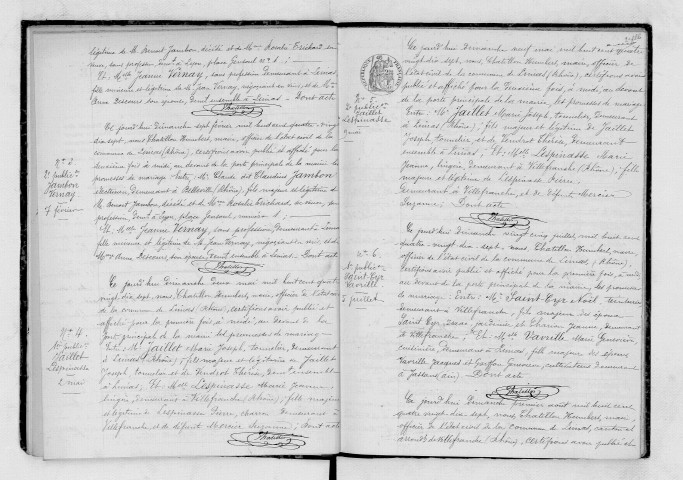 légitime de M. Benoit Jambon, décédé et de Mme Rosalie Trichard, sa
veuve, sans profession, demt à Lyon, place
Et, Melle Jeanne Vernay, sans profession, demeurant à Limas,
fille mineure et légitime de M. Jean Vernay, négociant au vin, et de Me
Anne Descours son épouse, demt ensemble à Limas. Dont acte
Chatillon
Ce jourd'hui Dimanche sept février, mil huit cent quatre-
vingt dix sept, nous Chatillon Humbert, maire, officier de l'état civil de la
commune de Limas (Rhône), certifions avoir publié et affiché pour la
deuxième fois à midi, au devant de la porte principale de la mairie les
promesses de mariage Entre, M. Claude dit Claudius Jambon
demeurant à Belleville (Rhône), fils majeur et légitime de
M. Benoit Jambon, décédé et de Me Rosalie Trichard, sa veuve, sans
profession, demt à Lyon, place
Et, Melle Jeanne Vernay, sans profession, demeurant à Limas,
fille mineure et légitime de M. Jean Vernay, négociant au vin, et de
Me Anne Descours, son épouse, demt ensemble à Limas. Dont acte
Chatillon
N° 3
2e publicon
Jambon
Vernay
7 février
Ce jourd'hui Dimanche deux mai, mil huit cent quatre
vingt dix sept, nous Chatillon Humbert, maire, officier de l'état civil
de la commune de Limas (Rhône), certifions avoir publié et
affiché pour la première fois, à midi, au devant de la
porte principale de la mairie les promesses de mariage
Entre M. Jaillet Marie Joseph, tonnelier, demeurant
à Limas (Rhône), fils majeur et légitime de Jaillet
Joseph, tonnelier et de Thérèse, demt ensemble
à Limas, Et, Melle Lespinasse Marie Jeanne,
lingère, demeurant à Villefranche (Rhône), fille majeure
et légitime de Lespinasse Pierre, demeurant à
Villefranche, et de défunte Mercier Suzanne; Dont acte
Chatillon
N° 4
1e publicon
Jaillet
Lespinasse
2 mai
Ce jourd'hui Dimanche neuf mai mil huit cent quatre
vingt dix sept, nous Chatillon Humbert, maire, officier
de l'état civil de la commune de Limas (Rhône), certifions avoir
publié et affiché pour la deuxième fois, à midi, au devant
de la porte principale de la mairie, les promesses de mariage
Entre: M. Jaillet Marie Joseph, tonnelier, demeurant
à Limas (Rhône), fils majeur et légitime de Jaillet
Joseph, tonnelier, et de Thérèse, demeurant
ensemble à Limas; Et, Melle Lespinasse Marie
Jeanne, lingère, demeurant à Villefranche (Rhône), fille
majeure et légitime de Lespinasse Pierre,
demeurant à Villefranche, et de défunte Mercier
Suzanne; Dont acte
Chatillon
N° 5
2e publicon
Jaillet
Lespinasse
9 mai
Ce jourd'hui Dimanche vingt cinq juillet, mil huit cent
quatre-vingt-dix-sept, nous Chatillon Humbert, maire,
officier de l'état civil de la commune de Limas, (Rhône)
certifions avoir publié et affiché pour la première fois, à midi,
au devant de la porte principale de la mairie, les promesses
de mariage: Entre: M. Saint-Cyr Noël
demeurant à Villefranche, fils majeur des époux
Saint-Cyr et Jeanne, demeurant
à Villefranche; Et, Melle Vavrille Marie Geneviève,
cuisinière, demeurant à Limas, fille majeure des époux
Vavrille Jacques et Geneviève, cultivateurs demeurant
à Jassans (Ain) — Dont acte
Chatillon
N° 6
1e publicon
Saint-Cyr
Vavrille
25 juillet
Ce jourd'hui Dimanche premier août mil huit cent
quatre vingt dix sept, nous Chatillon Humbert, maire
officier de l'état civil de la commune de Limas, canton et
arrondt de Villefranche (Rhône), certifions avoir publié et